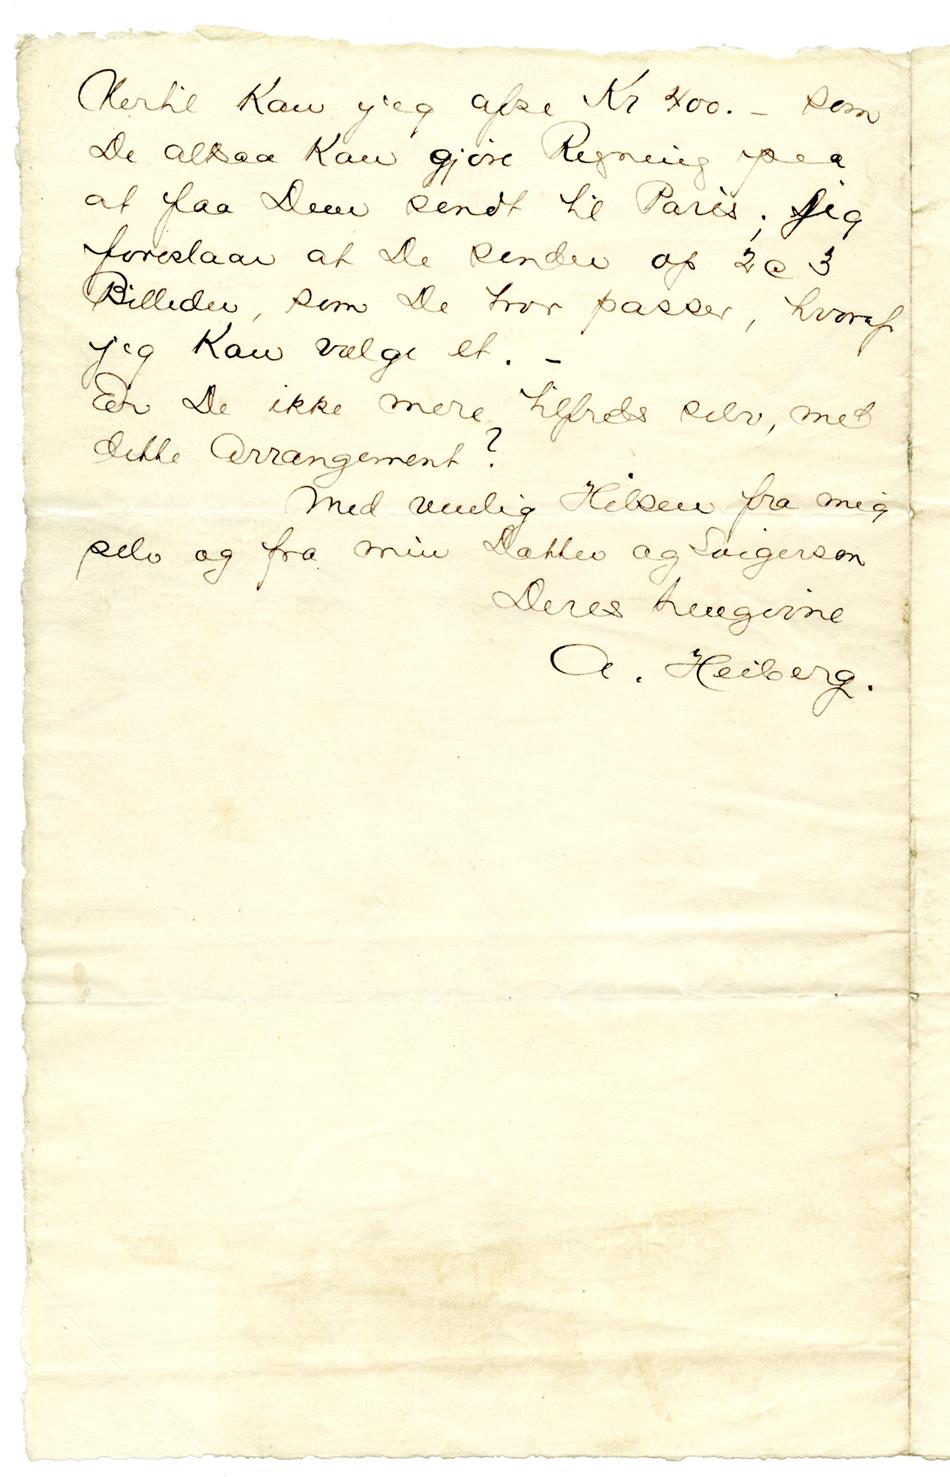 Hertil Kan jeg afse Kr 400. – som
De altsaa Kan gjöre Regning paa
at faa Dem sendt til Paris; Jeg
foreslaar at De sender op 2 a 3
Billeder, som De tror passer, hvoraf
jeg Kan vælge et. –
Er De ikke mere tilfreds selv, med
dette Arrangement?
Med venlig Hilsen fra mig
selv og fra min Datter og Svigersøn
Deres hengivne
A. Heiberg.